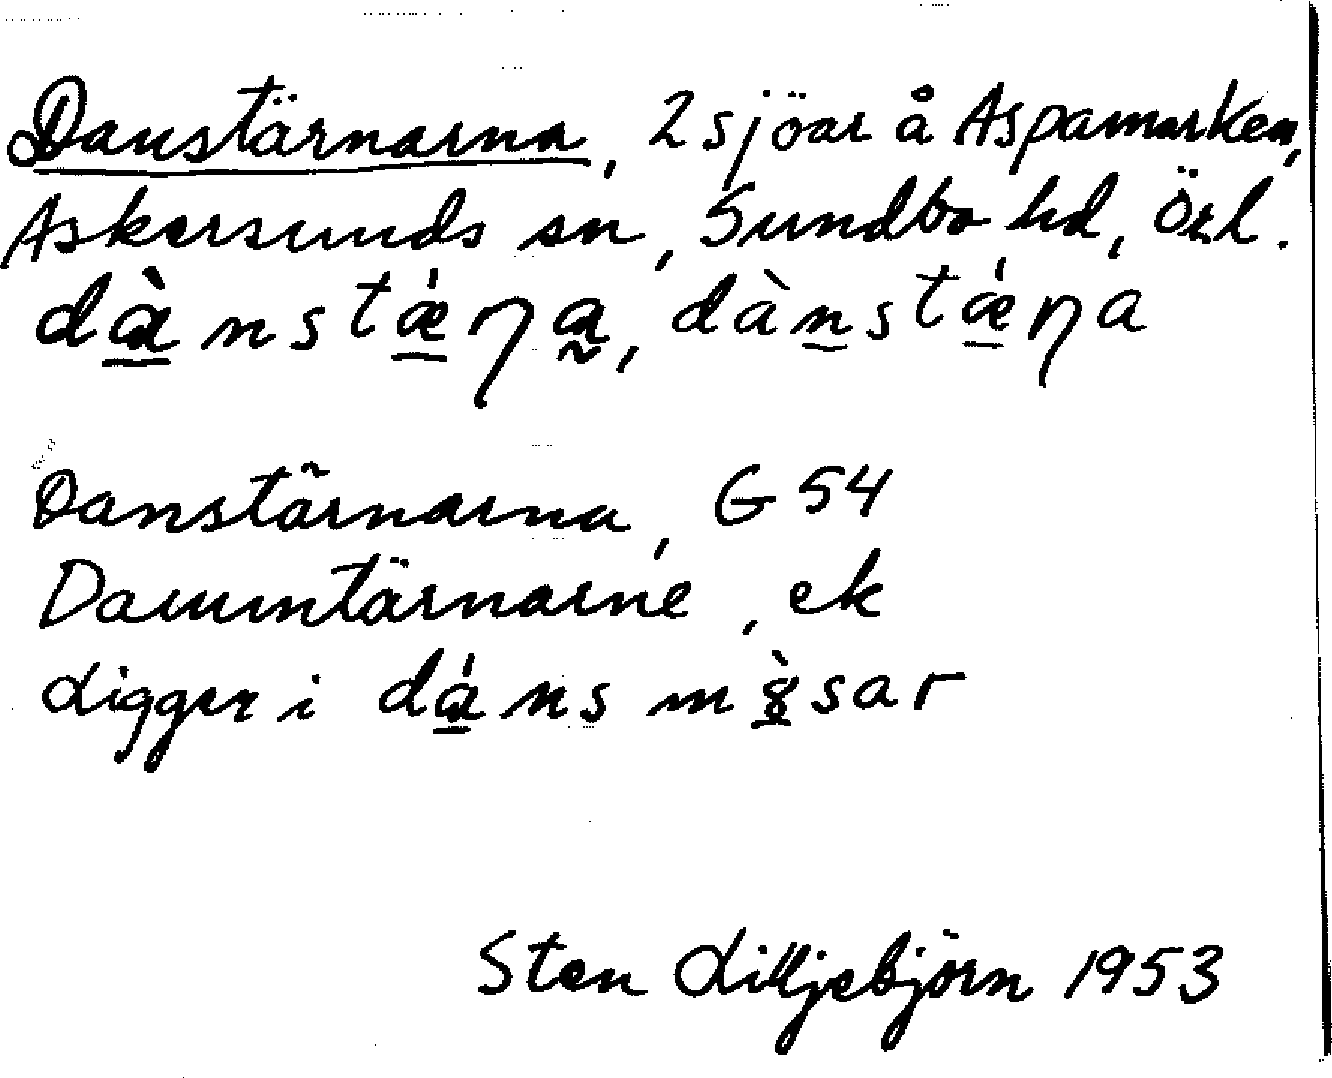 Danstärnarna, 2 sjöar å Aspamarken,
Askersunds sn, Sundbo hd, Örl.
dànstǽɳa, dànstǽɳa
Danstärnarna, G 54
Dammtärnarne, ek
Ligger i dáns m sar
Sten Liljebjörn 1953